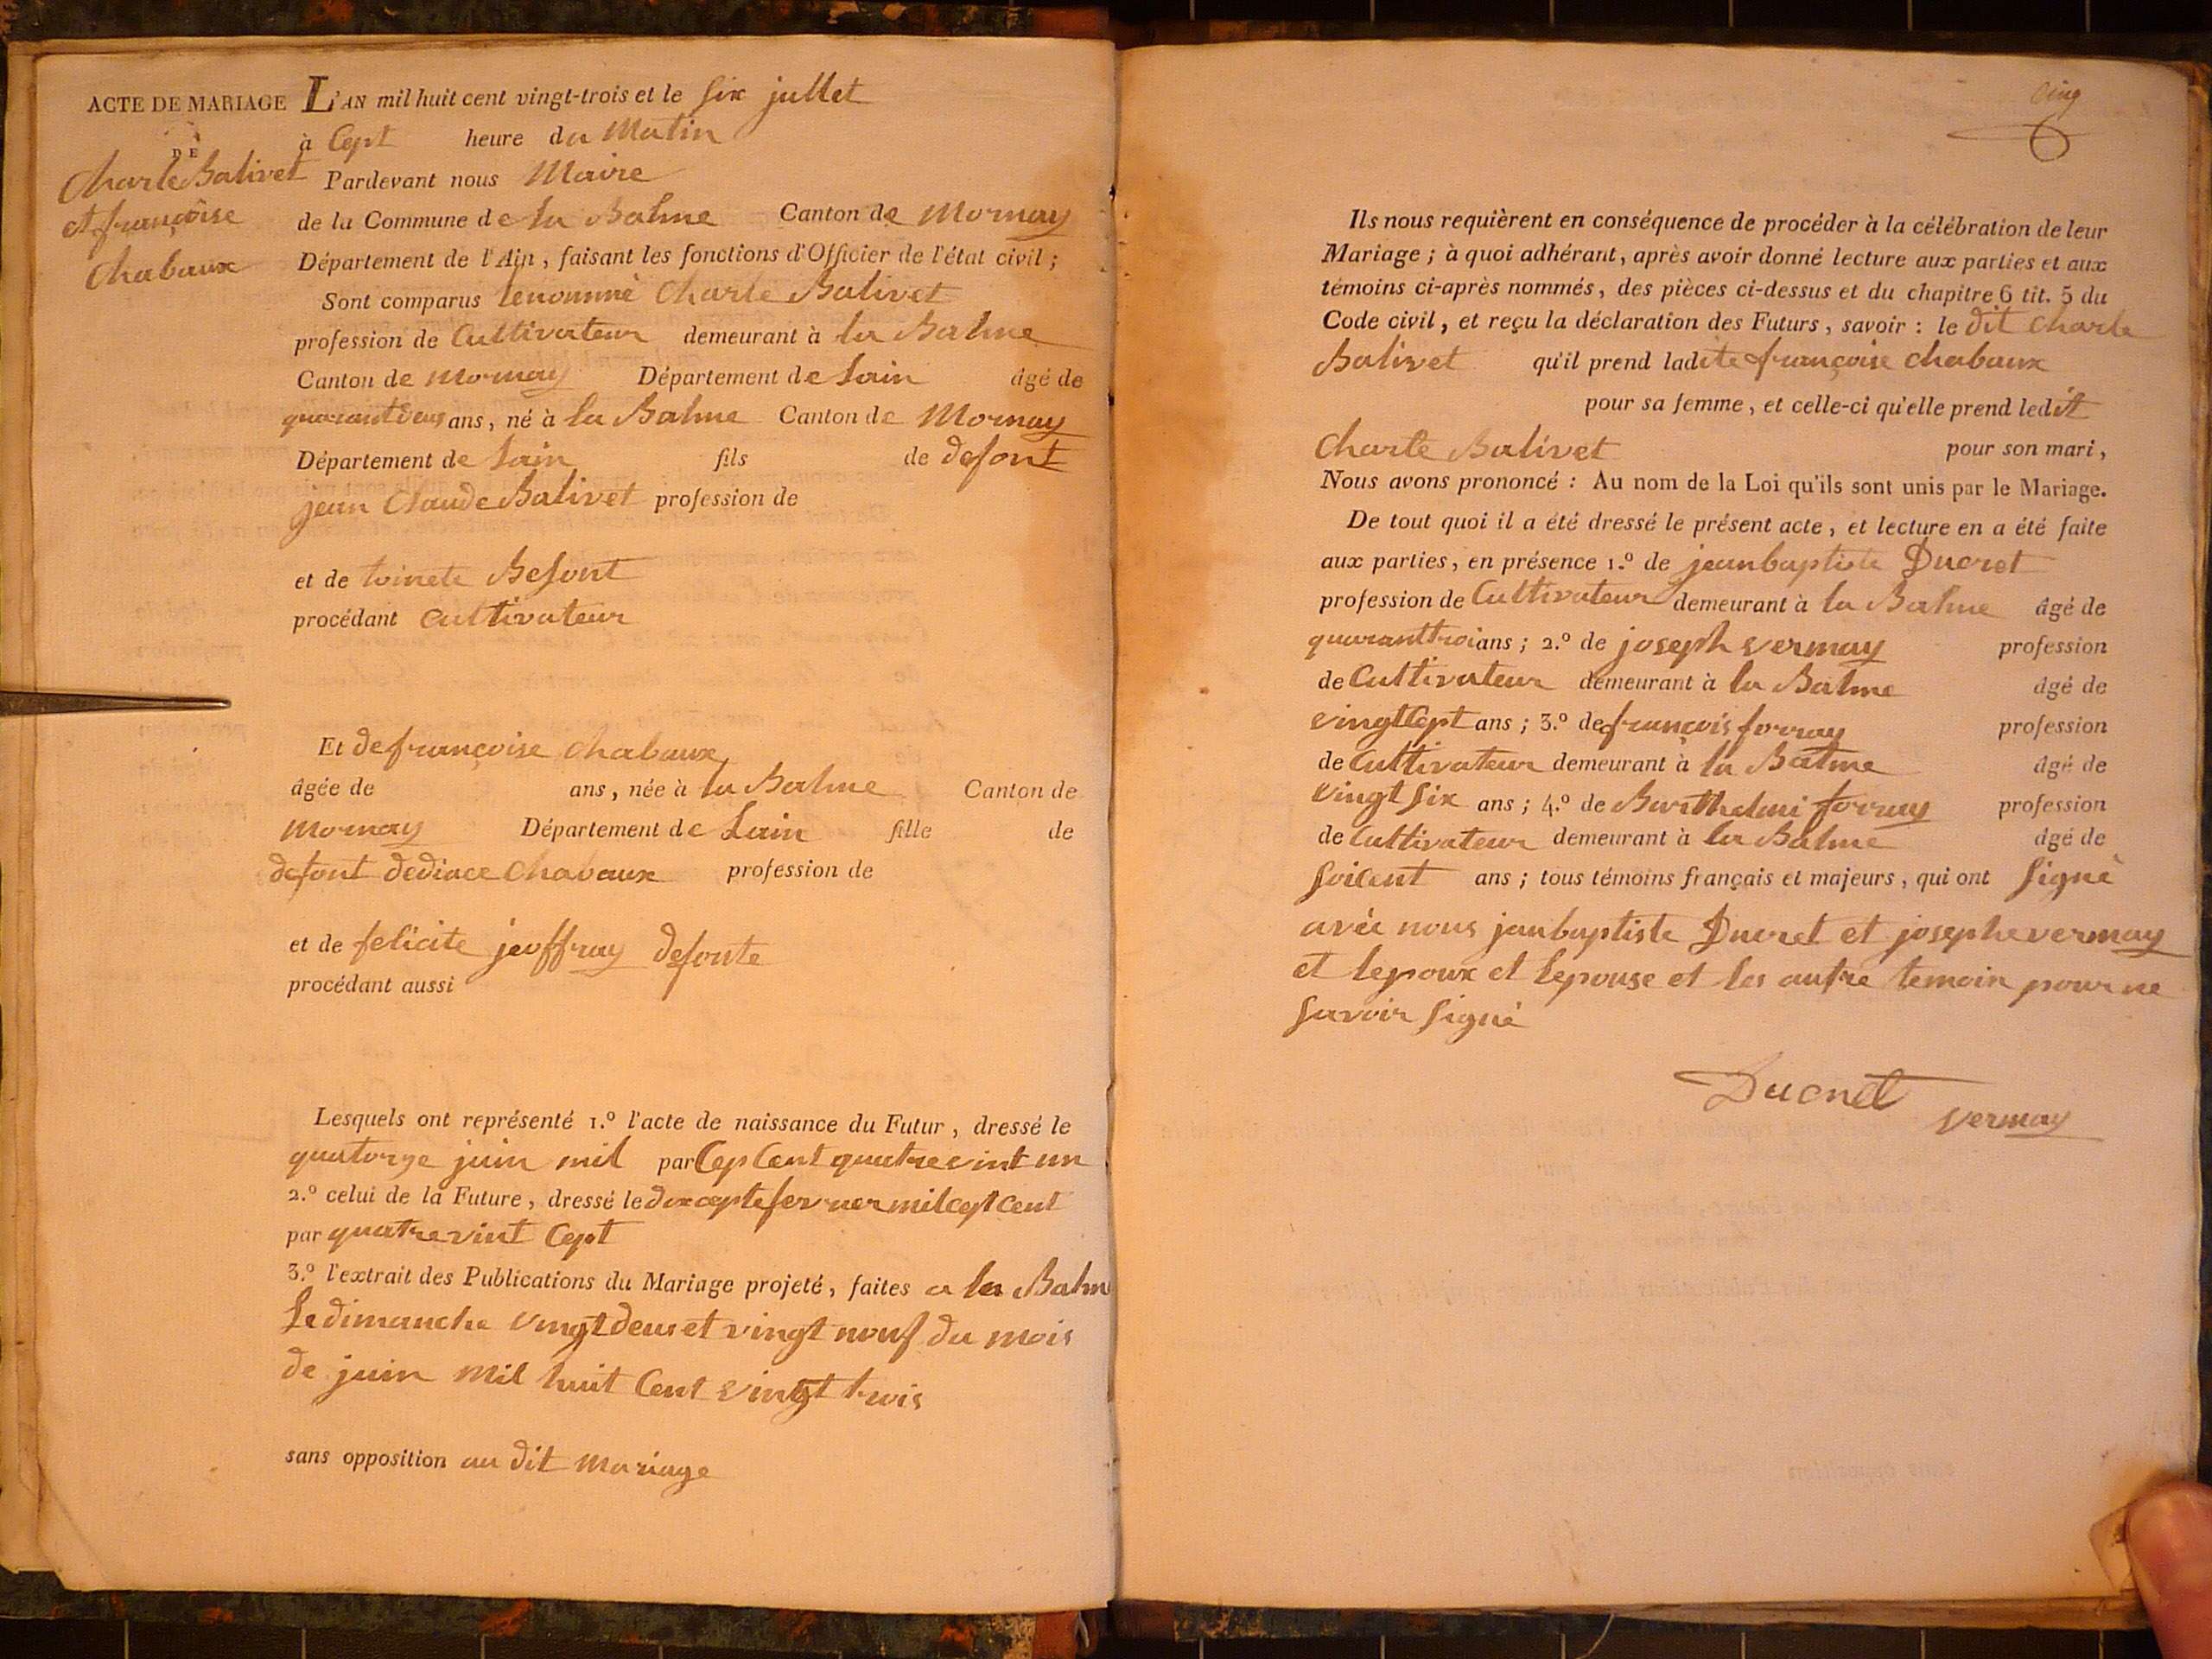 ACTE DE MARIAGE
DE
Charle Balivet
et françoise
Chabaux
L'AN mil huit cent vingt-trois et le six jullet
à Cept heure du Matin
Pardevant nous Maire
de la Commune de la Balme Canton de Mornay
Département de l'Ain, faisant les fonctions d'Officier de l'état civil;
Sont comparus lenommé Charle Balivet
profession de Cultivateur demeurant à la Balme
Canton de Mornay Département de Lain âgé de
quarantdeus ans, né à la Balme Canton de Mornay
Département de Lain fils de defont
jean Claude Balivet profession de
et de toinete Befont
procédant Cultivateur
Et de françoise Chabaux
âgée de ans, née à la Balme Canton de
Mornay Département de Lain fille de
defont Chabaux profession de
et de felicite jeoffray defonte
procédant aussi
Lesquels ont représenté 1.º l'acte de naissance du Futur, dressé le
quatorze juin mil par Cep Cent quatrevint un
2.º celui de la Future, dressé le fervier milcept Cent
par quatrevint Cept
3.º l'extrait des Publications du Mariage projeté, faites a la Balm
Le dimanche vingt deus et vingt nouf du mois
de juin mil huit Cent vingt trois
sans opposition au dit mariage
Cinq
Ils nous requièrent en conséquence de procéder à la célébration de leur
Mariage; à quoi adhérant, après avoir donné lecture aux parties et aux
témoins ci-après nommés, des pièces ci-dessus et du chapitre 6 tit. 5 du
Code civil, et reçu la déclaration des Futurs, savoir: le dit Charle
Balivet qu'il prend ladite françoise Chabaux
pour sa femme, et celle-ci qu'elle prend ledit
Charle Balivet pour son mari,
Nous avons prononcé: Au nom de la Loi qu'ils sont unis par le Mariage.
De tout quoi il a été dressé le présent acte, et lecture en a été faite
aux parties, en présence 1.º de jeanbaptiste Ducret
profession de Cultivateur demeurant à la Balme âgé de
quaranttroi ans; 2.º de joseph vermay profession
de Cultivateur demeurant à la Balme âgé de
vingtCept ans; 3.º de françois forray profession
de Cultivateur demeurant à la Balme âgé de
vingt six ans; 4.º de Barthelmi forray profession
de Cultivateur demeurant à la Balme âgé de
soicent ans; tous témoins français et majeurs, qui ont signé
avéc nous janbaptiste Ducret et josephe vermay
et lepoux et lepouse et les autre temoin pour ne
savoir signé
Ducret
vermay